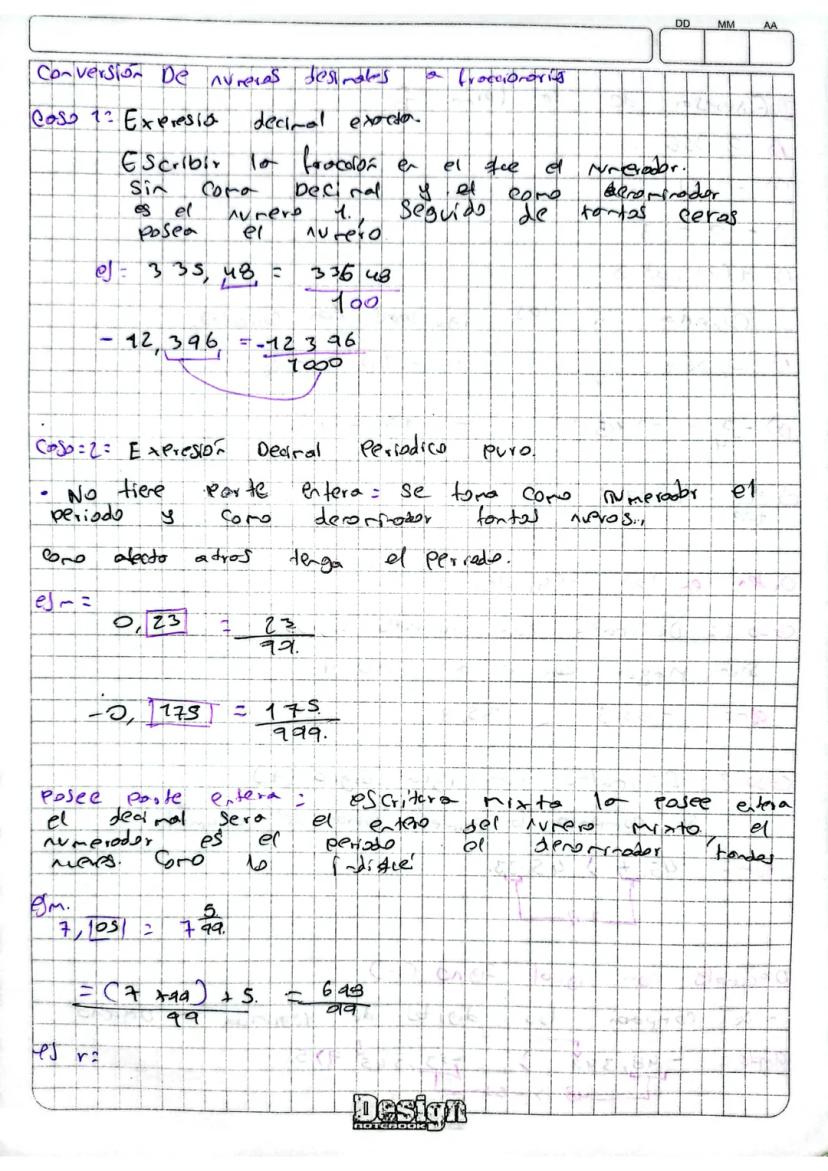 DD MM AA
Conversión De numeros desimales a fraccionarios
Caso 1: Expresió decimal exacta.
Escribir la fracción en el que el numerador.
Sin coma Decimal y el como denominador
es el numero 1, Seguido de tantos ceros
posea el numero
ej= 335,48 = 33548
100
- 12,396 = -12396
1000
Caso=2= Expresión Decimal Periodico puro.
• No tiene parte entera= se toma como numerador el
periodo y como denominador tantos nueves..
como tenga el periodo.
ejm=
0,23 = 23
99.
-0,175 = 175
999.
Posee parte entera: escritura mixta la posee entera
el decimal sera el entero del numero mixto, el
numerador es el periodo el denominador tantos
nueves. Como lo indique
ejm.
7,05 = 7 5
99.
= (7 x 99) + 5. = 698
99 99
ej r=
Design
NOTEBOOK